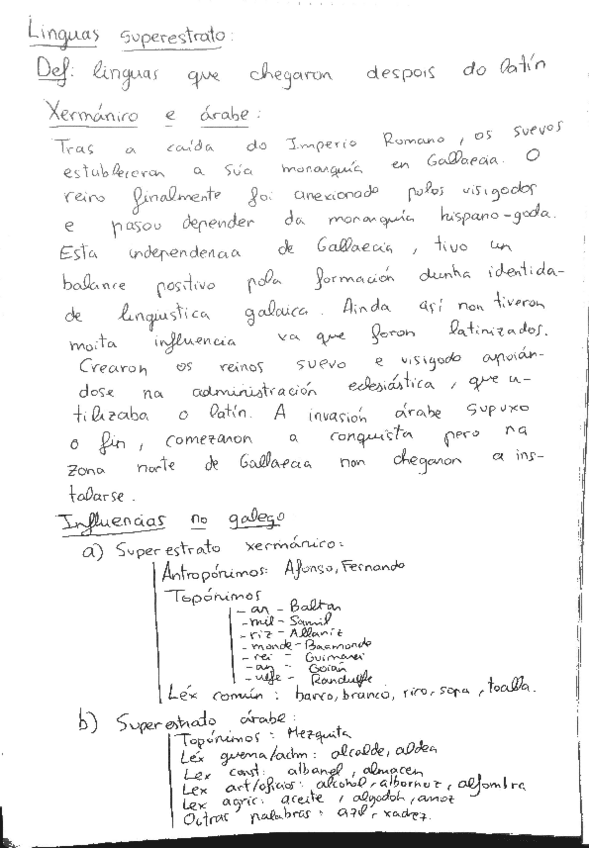 Linguas superestrato:
Def: linguas que chegaron despois do latín
Xermánico e árabe:
Tras a caída do Imperio Romano, os suevos
estableceron a súa monarquía en Gallaecia. O
reino finalmente foi anexionado polos visigodos
e pasou depender da monarquía hispano-goda.
Esta independencia de Gallaecia, tivo un
balance positivo pola formación dunha identida-
de lingüística galaica. Ainda así non tiveron
moita influencia xa que foron latinizados.
Crearon os reinos suevo e visigodo apoián-
dose na administración eclesiástica, que u-
tilizaba o latín. A invasión árabe supuxo
o fin, comezaron a conquista pero na
zona norte de Gallaecia non chegaron a ins-
talarse.
Influencias no galego
a) Superestrato xermánico:
Antropónimos: Afonso, Fernando
Topónimos
-an - Baltar
-mil - Samil
-riz - Allariz
-monde - Baamonde
-rei - Guimarei
-an - Goián
-ulfe - Randulfe
Léx común: barro, branco, rico, sopa, toalla.
b) Superestrato árabe:
Topónimos: Mezquita
Léx guerra/adm: alcalde, aldea
Lex const: albanel, almacen
Lex art/oficios: alcohol, albornoz, alfombra
Lex agric: aceite, algodón, arroz
Outras palabras: azul, xadrez.